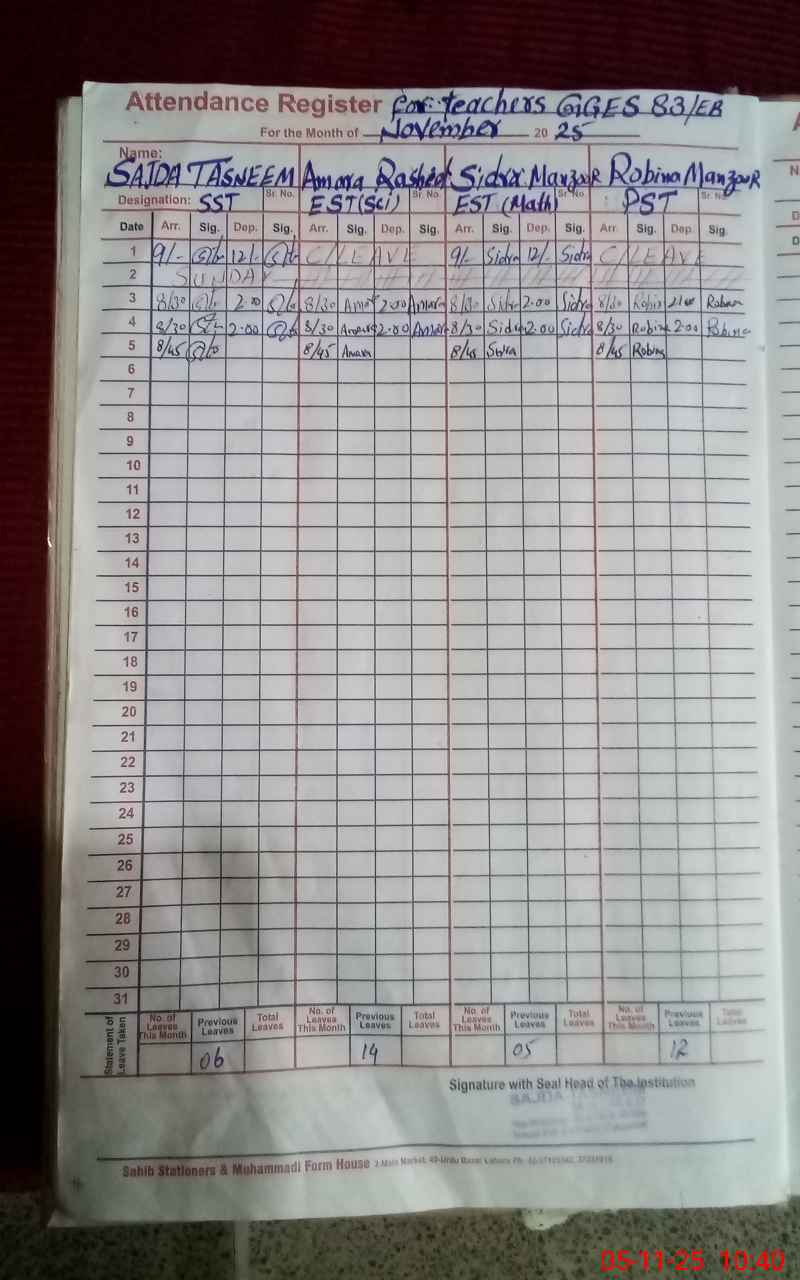 Attendance Register for teachers GGES 83/EB
For the Month of November 20 25
Name:
SAJDA TASNEEM Amara Rasheed Sidra Manzoor Robina Manzoor
Designation: SST Sr. No. EST(Sci) Sr. No. EST (Math) Sr. No. PST Sr. No.
Date Arr. Sig. Dep. Sig. Arr. Sig. Dep. Sig. Arr. Sig. Dep. Sig. Arr. Sig. Dep. Sig.
1 9/- 12/- C/LEAVE 9/- Sidra 12/- Sidra C/LEAVE
2 SUNDAY
3 8/30 2.00 8/30 Amara 2.00 Amara 8/30 Sidra 2.00 Sidra 8/30 Robina 2.00 Robina
4 8/30 2.00 8/30 Amara 2.00 Amara 8/30 Sidra 2.00 Sidra 8/30 Robina 2.00 Robina
5 8/45 8/45 Amara 8/45 Sidra 8/45 Robina
6
7
8
9
10
11
12
13
14
15
16
17
18
19
20
21
22
23
24
25
26
27
28
29
30
31
Statement of Leave Taken
No. of Leaves This Month Previous Leaves Total Leaves No. of Leaves This Month Previous Leaves Total Leaves No. of Leaves This Month Previous Leaves Total Leaves No. of Leaves This Month Previous Leaves Total Leaves
06 14 05 12
Signature with Seal Head of The Institution
Sahib Stationers & Muhammadi Form House 2-Main Market, 49-Urdu Bazar Lahore
05-11-25 10:40